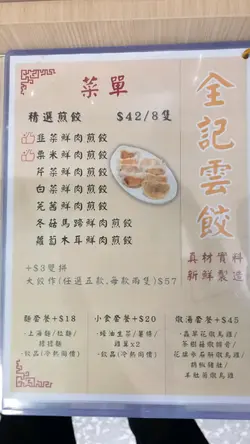 菜單
全記雲餃
真材實料
新鮮製造
精選煎餃 $42/8隻
韮菜鮮肉煎餃
粟米鮮肉煎餃
芹菜鮮肉煎餃
白菜鮮肉煎餃
芫茜鮮肉煎餃
冬菇馬蹄鮮肉煎餃
蘿蔔木耳鮮肉煎餃
+$3雙拼
大餃炸(任選五款,每款兩隻)$57
麵套餐+$18
-上海麵/拉麵/
揉揉麵
-飲品(冷熱同價)
小食套餐+$20
-蠔油生菜/薯條/
雞翼x2
-飲品(冷熱同價)
燉湯套餐+$45
-蟲草花燉烏雞/
茶樹菇燉排骨/
花旗參石斛燉烏雞/
胡椒豬肚/